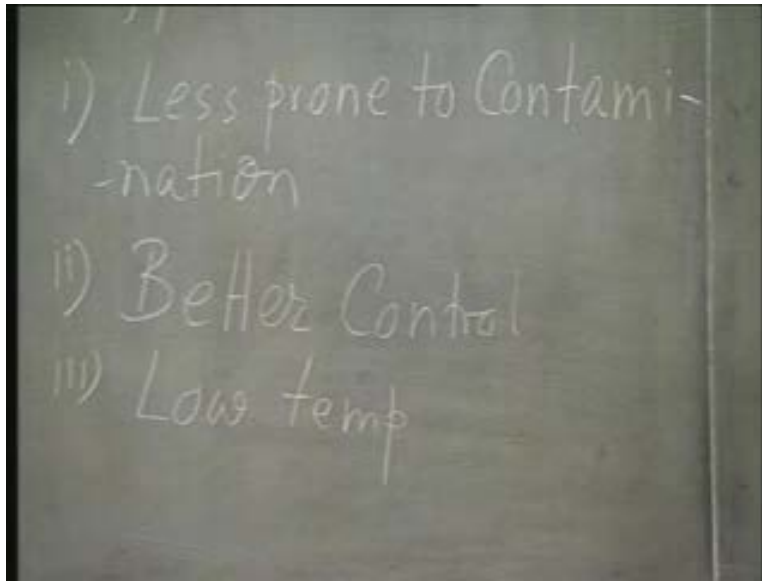 i) Less prone to Contami-
-nation
ii) Better Control
iii) Low temp